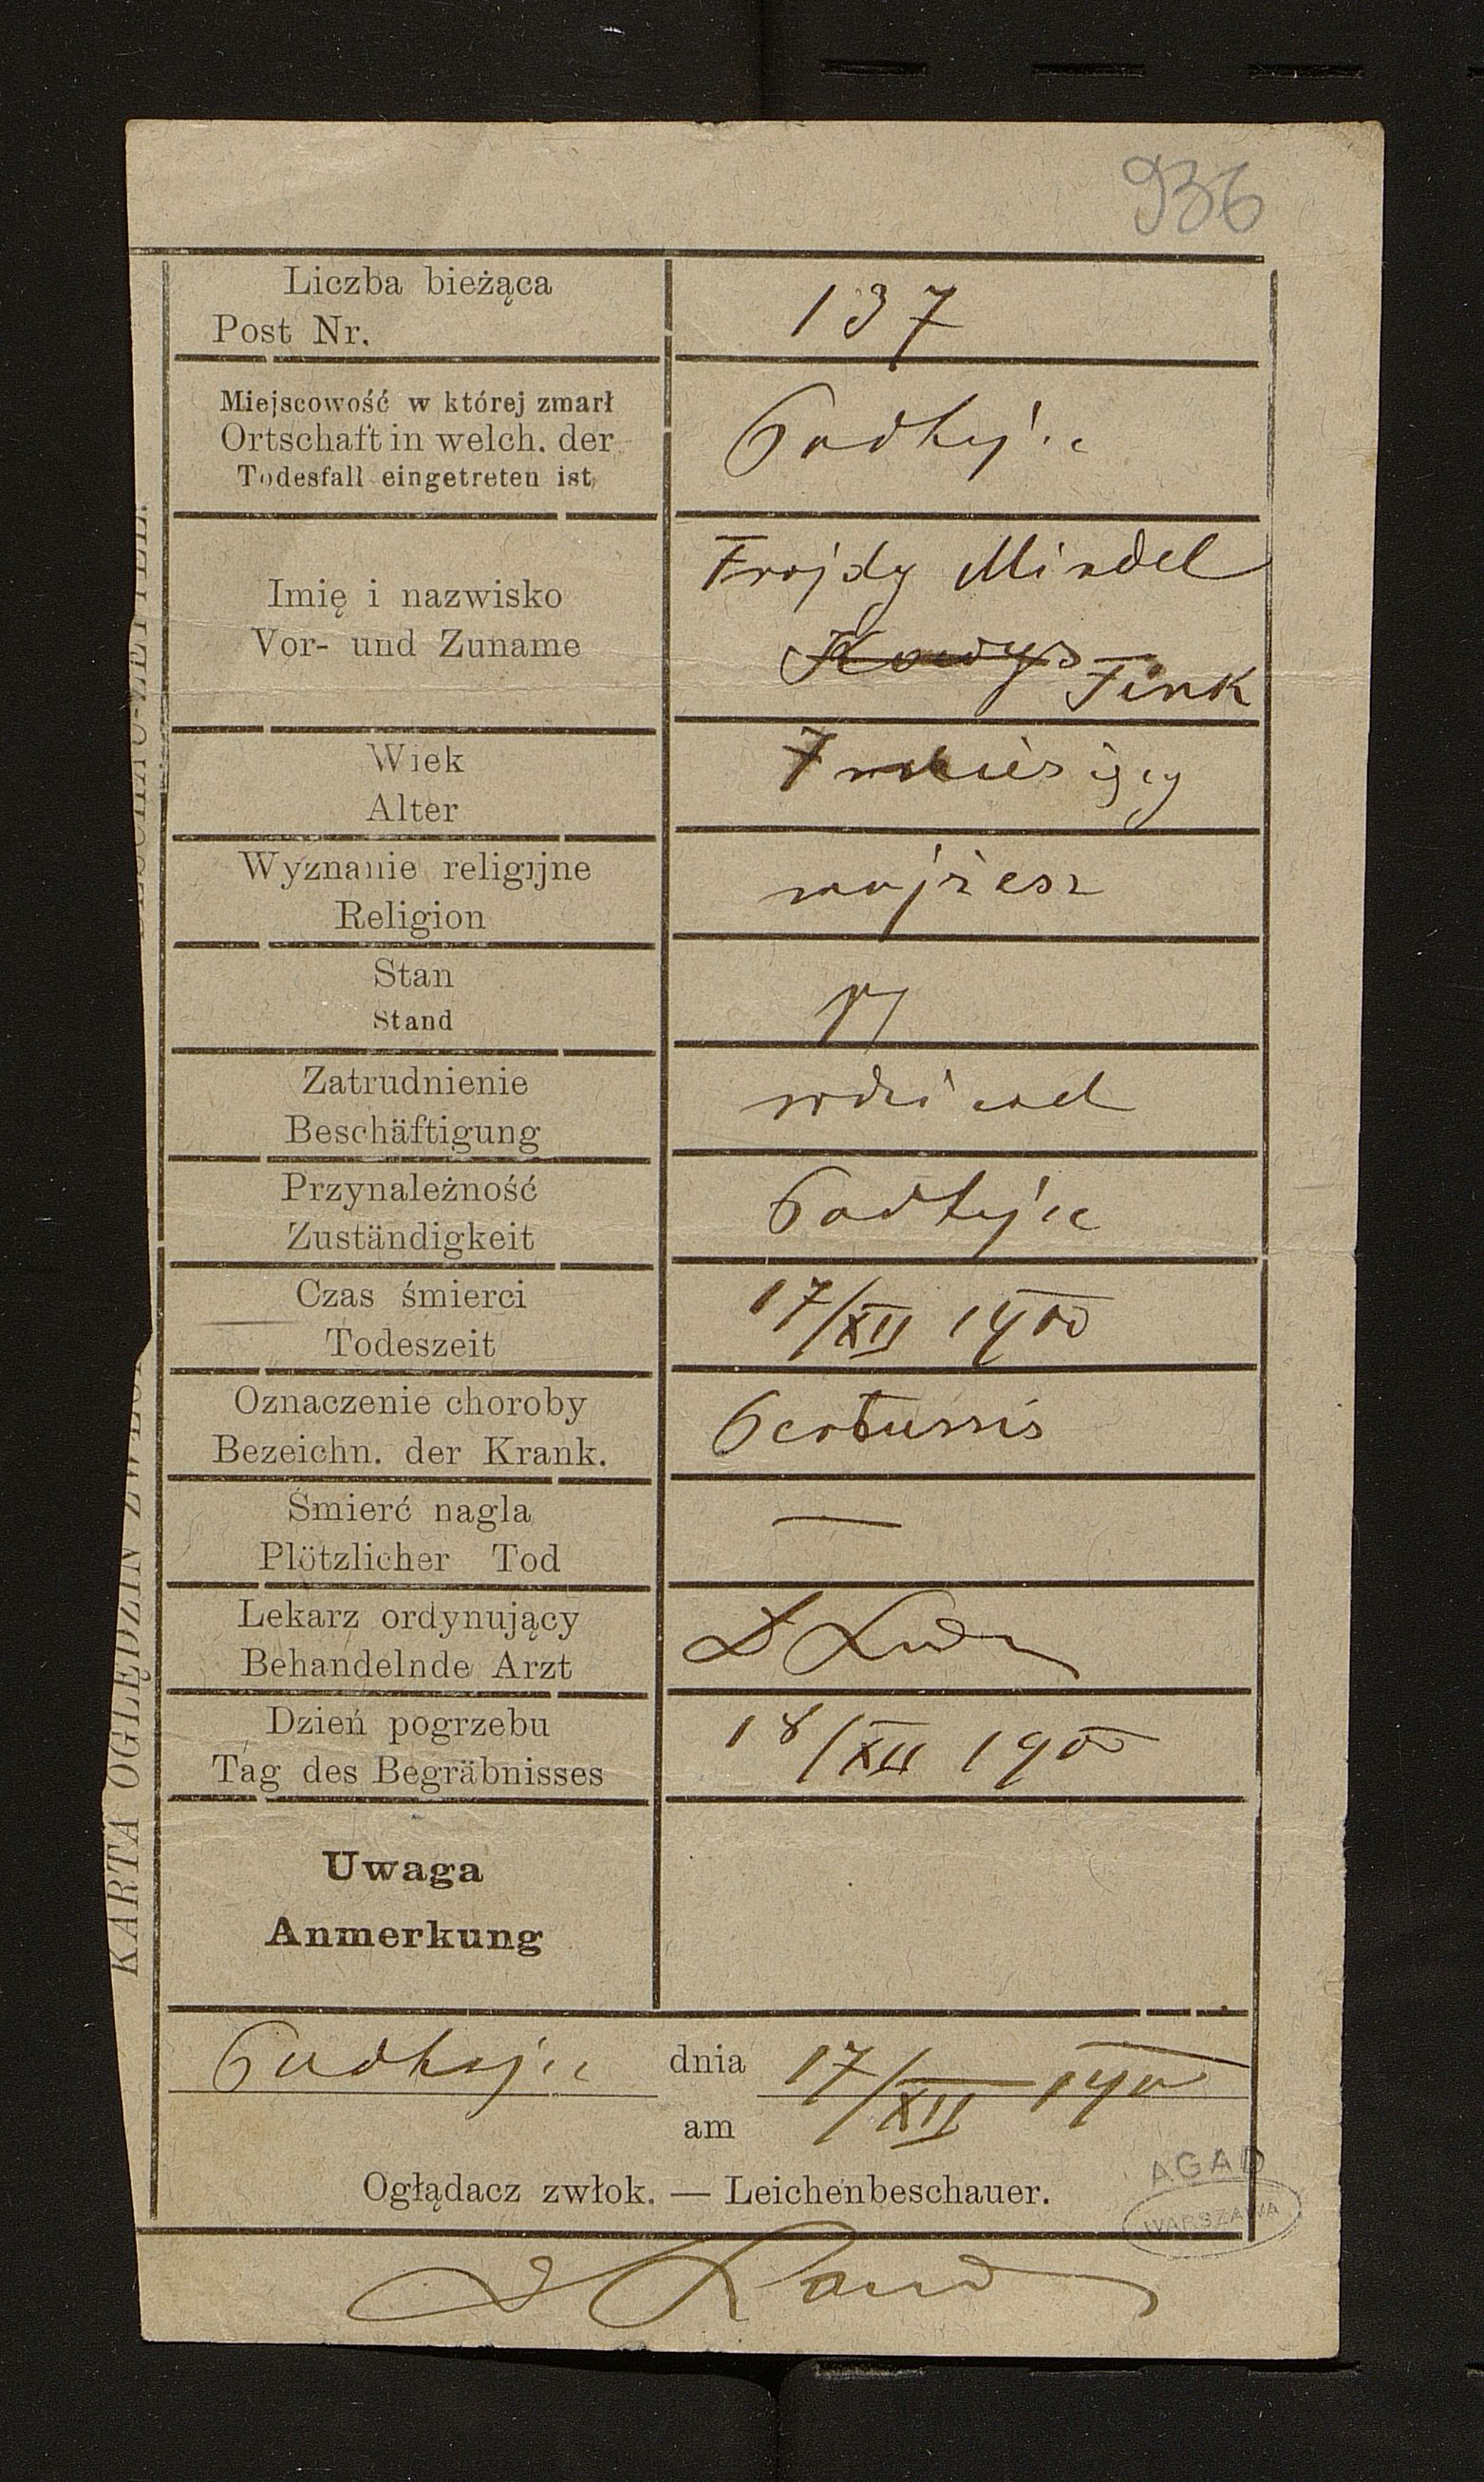 936
Liczba bieżąca
Post Nr.
137
Miejscowość w której zmarł
Ortschaft in welch. der
Todesfall eingetreten ist
Podhajce
Imię i nazwisko
Vor- und Zuname
Frojdy Mindel
Fink
Wiek
Alter
7 miesięcy
Wyznanie religijne
Religion
mojżesz
Stan
Stand
Zatrudnienie
Beschäftigung
Przynależność
Zuständigkeit
Podhajce
Czas śmierci
Todeszeit
17/XII 1900
Oznaczenie choroby
Bezeichn. der Krank.
Pertussis
Śmierć nagla
Plötzlicher Tod
—
Lekarz ordynujący
Behandelnde Arzt
Dzień pogrzebu
Tag des Begräbnisses
18/XII 1900
Uwaga
Anmerkung
Podhajce dnia 17/XII 1900
am
Oglądacz zwłok. — Leichenbeschauer.
AGAD
WARSZAWA
KARTA OGLĘDZIN